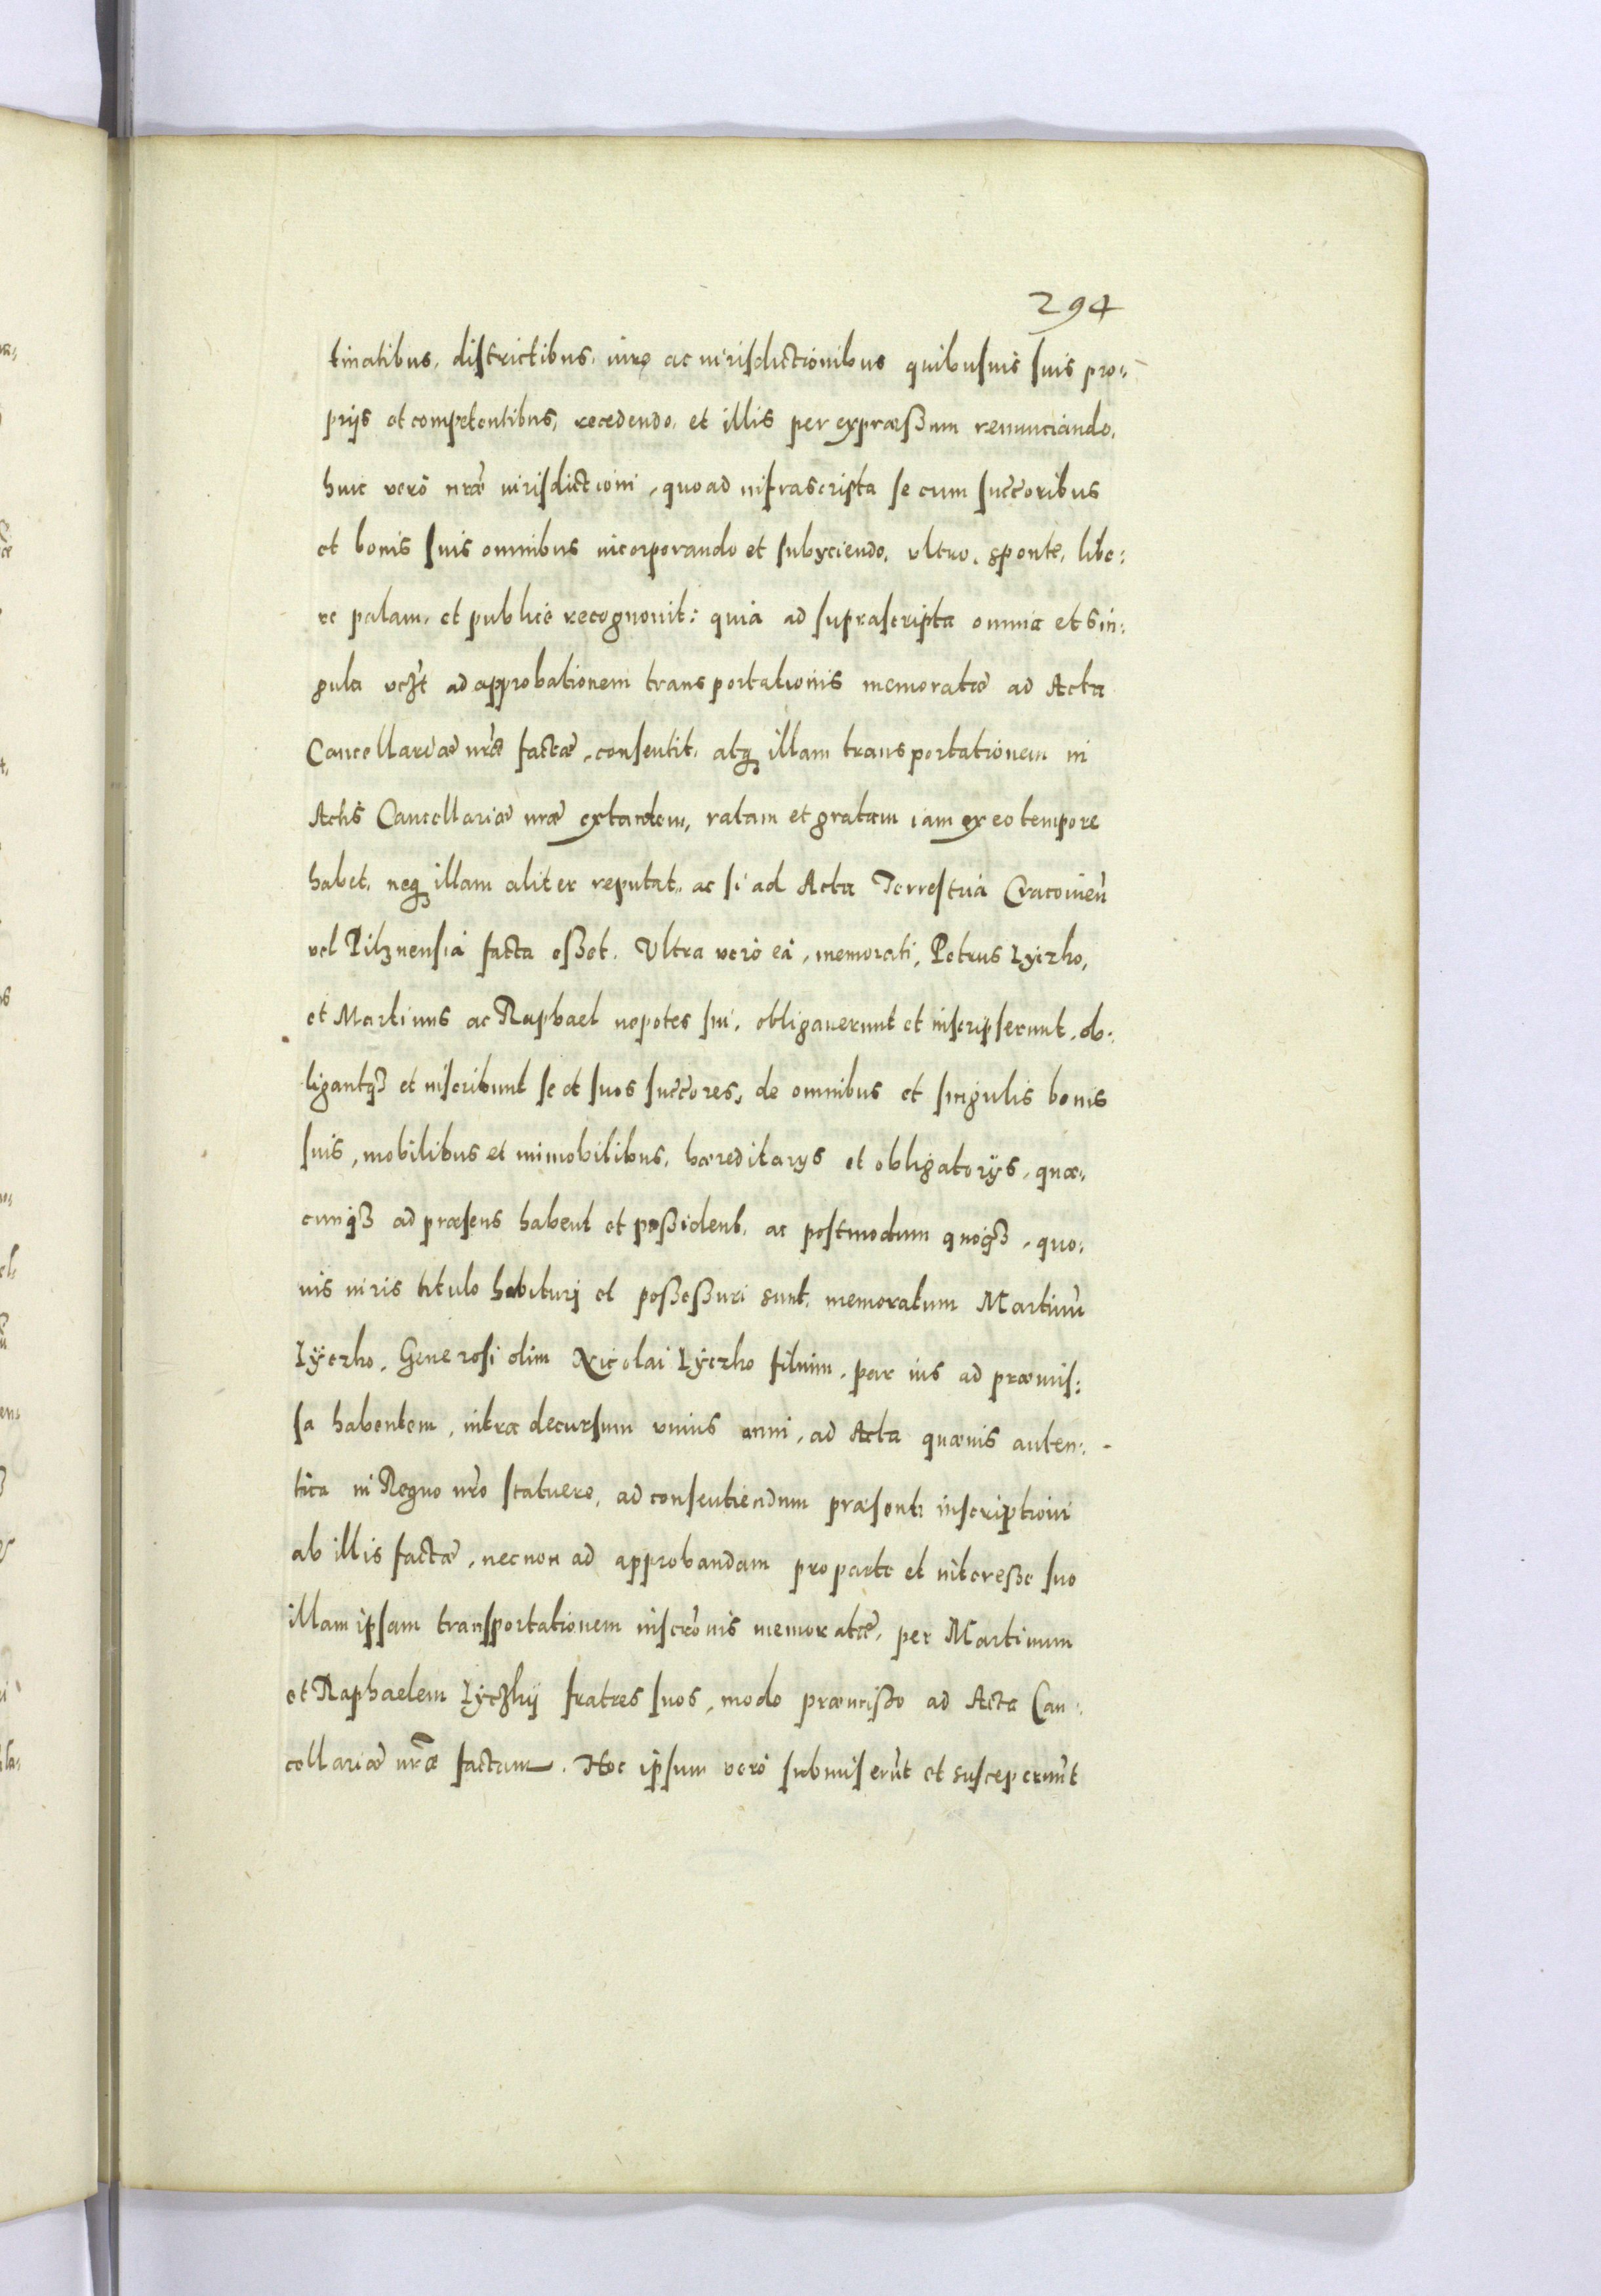 294
tinatibus, districtibus, iure ac iurisdictionibus quibusuis suis pro:
prijs et competentibus, recedendo, et illis per expræßum renunciando,
huic verò nr̃æ iurisdictioni, quoad infrascripta se cum succ̃oribus
et bonis suis omnibus incorporando et subyciendo, vltro, sponte, libe:
re palam, et publicè recognouit: quià ad suprascripta omnia et sin:
gula vcz̃t ad approbationem transportationis memoratæ ad Acta
Cancellariæ nr̃æ factæ, consentit, atq̃ illam transportationem in
Actis Cancellariæ nræ extantem, ratam et gratam iam ex eo tempore
habet, neq̃ illam aliter reputat, ac si ad Acta Terrestria Cracouien̄
vel Pilznensià facta eßet. Vltra verò eà, memorati, Petrus Lyczko,
et Martinus ac Raphael nepotes sui, obligauerunt et inscripserunt, ob:
ligantq₃ et inscribunt se et suos succ̃ores, de omnibus et singulis bonis
suis, mobilibus et immobilibus, hæreditarys et obligatorijs, quæ:
cunq₃ ad præsens habent et poßident, ac postmodum quoq₃, quo:
uis iuris titulo habituri et poßeßuri sunt, memoratum Martinū
Lÿczko, Generosi olim Nicolai Lÿczko filium, par ius ad præmis:
sa habentem, intra decursum vnius anni, ad Acta quæuis auten:
tica in Regno nr̃o statuere, ad consentiendum præsenti inscriptioni
ab illis factæ, necnon ad approbandam pro parte et intereße suo
illam ipsam transportationem inscr̃onis memoratæ, per Martinum
et Raphaelem Lyczkij fratres suos, modo præmißo ad Acta Can:
cellariæ nr̃æ factam. Hoc ipsum verò submiserūt et susceperunt